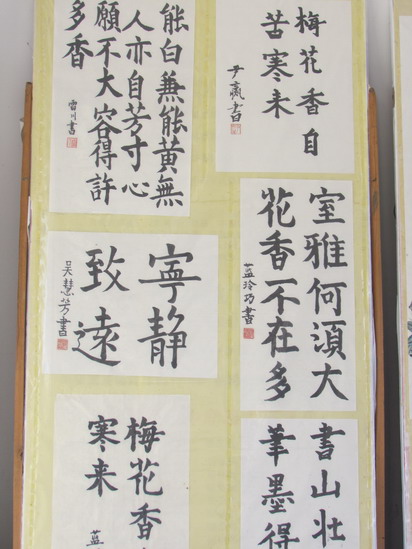 能白兼能黄無
人亦自芳寸心
願不大容得許
多香
雪川書
梅花香自
苦寒来
尹嬴書
寧静
致遠
吴慧芳書
室雅何須大
花香不在多
蓝玲巧書
梅花香
寒来
蓝
書山壮
筆墨得